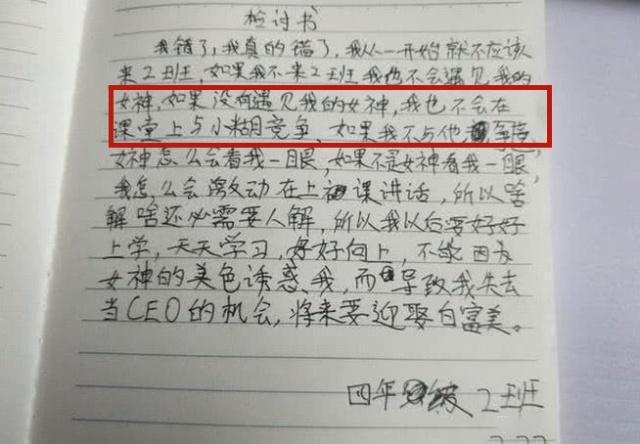 检讨书
我错了,我真的错了,我从一开始就不应该
来2班,如果我不来2班我也不会遇见我的
女神,如果没有遇见我的女神,我也不会在
课堂上与小糊竞争、如果我不与他争
女神怎么会看我一眼,如果不是女神看我一眼,
我怎么会激动在上课讲话,所以啥
解啥还必需要人解,所以我以后要好好
上学,天天学习,好好向上,不能因为
女神的美色诱惑我,而导致我失去
当CEO的机会,将来要迎娶白富美。
四年级2班